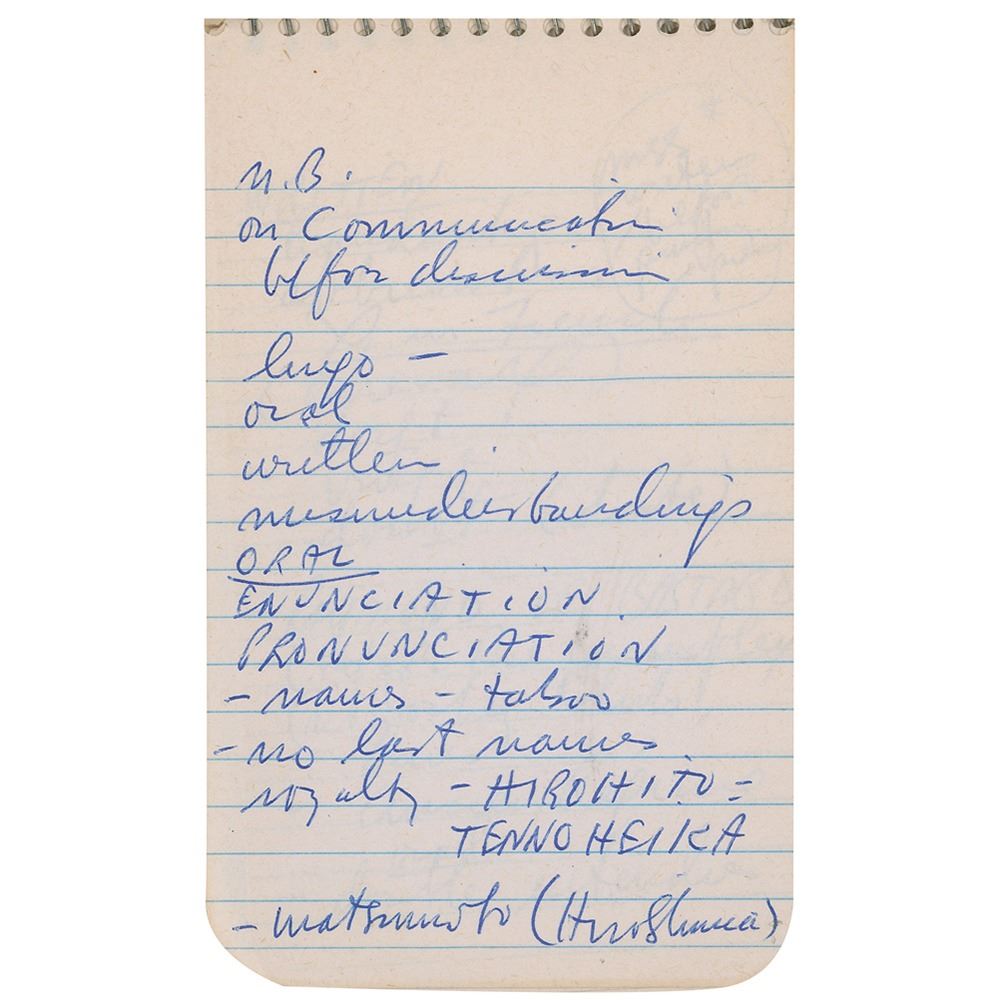 N.B.
on Communication
for discussion
lingo –
oral
written
misunderstandings
ORAL
ENUNCIATION
PRONUNCIATION
– names – taboo
– no last names
royalty – HIROHITO =
TENNO HEIKA
– Matsumoto (Hiroshima)